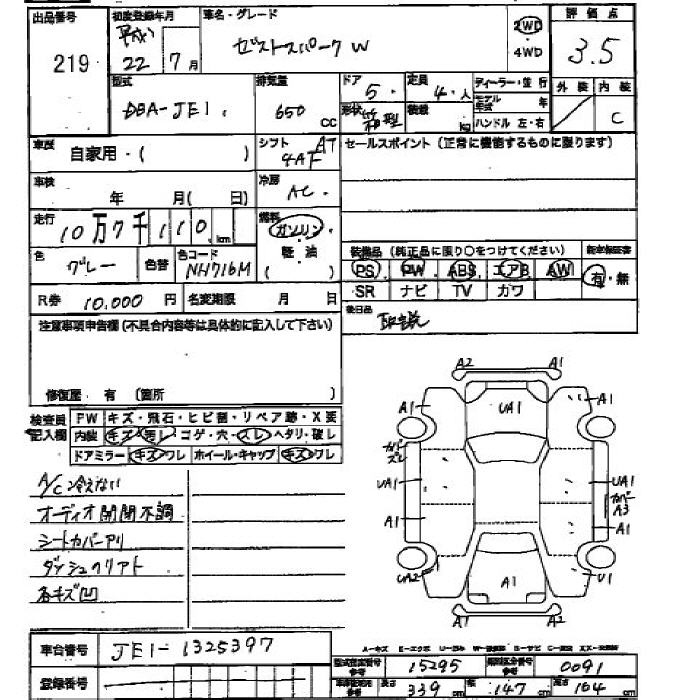 出品番号 219
初度登録年月 平成 22年 7月
車名・グレード ゼストスパーク W
2WD ・4WD
評価点 3.5
外装 内装 C
型式 DBA-JE1
排気量 650 cc
ドア 5・
形状 箱型
定員 4・人
積載 kg
ディーラー・並行
モデル年式 年
ハンドル 左・右
車歴 自家用・( )
シフト AT 4AF
セールスポイント (正常に機能するものに限ります)
車検 年 月( 日)
冷房 AC
走行 10万7千110 km
燃料 ガソリン 軽油 ( )
色 グレー 色替
色コード NH716M
装備品 (純正品に限り○をつけてください) 新車保証書
PS PW ABS エアB AW 有・無
SR ナビ TV カワ
R券 10.000 円 名変期限 月 日
後日品 取説
注意事項申告欄(不具合内容等は具体的に記入して下さい)
修復歴 有 (箇所 )
検査員記入欄
FW キズ・飛石・ヒビ割・リペア跡・X要
内装 キズ・汚レ・コゲ・穴・スレ・ヘタリ・破レ
ドアミラー キズ・ワレ ホイール・キャップ キズ・ワレ
A/C冷えない
オーディオ開閉不調
シートカバーアリ
ダッシュヘリアト
各キズ凹
A2 A1
A1 UA1 A1
カバーズレ
UA1 UA1
カバーA3
A1 A1
UA2 A1 U1
A1 A2
車台番号 JE1-1325397
登録番号
型式指定番号 参考 15295
類別区分番号 参考 0091
長さ 339 cm 幅 147 cm 高さ 164 cm